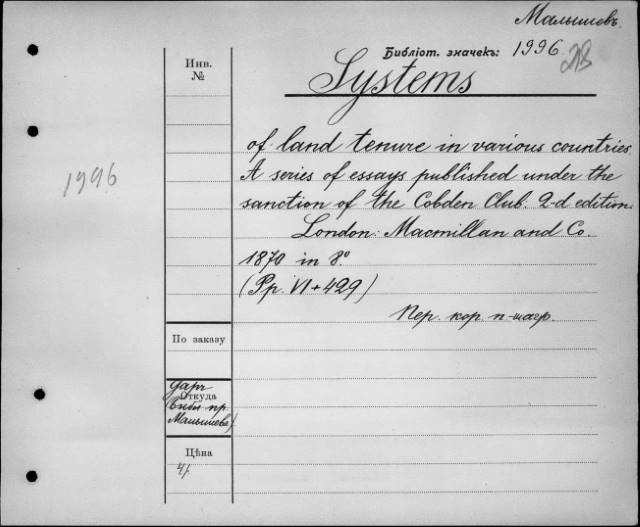 Малышевъ
Библіот. значекъ: 1996
Инв.
№
Systems
of land tenure in various countries.
A series of essays published under the
sanction of the Cobden Club. 2-d edition.
1996
London: Macmillan and Co.
1870 in 8°
(Pp. VI + 429)
Пер. кор. п-шагр.
По заказу
даръ
Откуда
(библ пр.
Малышева)
Цѣна